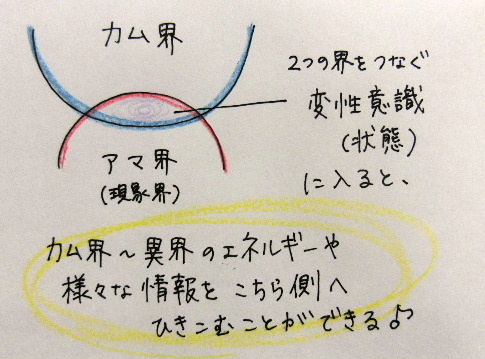 カム界
2つの界をつなぐ
変性意識
(状態)
に入ると、
アマ界
(現象界)
カム界〜異界のエネルギーや
様々な情報をこちら側へ
ひきこむことができる♪